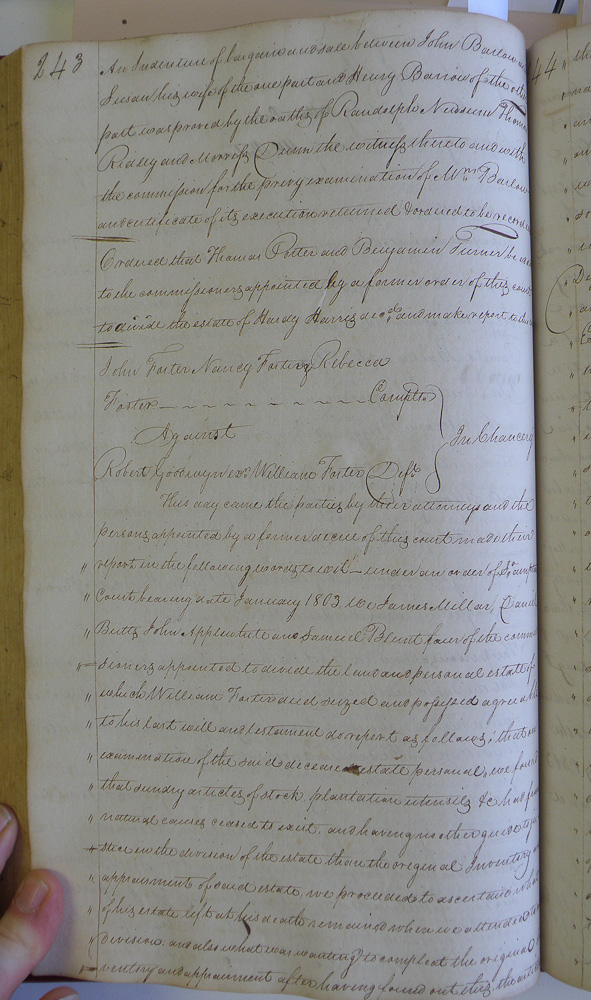 243
An Indenture of bargain and sale between John Barlow and
Susan his wife of the one part and Henry Barrow of the other
part was proved by the oaths of Randolph Newsum Thomas
Ridley and Morriss Dunn the witness thereto and with
the commission for the privy examination of Mrs Barlow
and certificate of its execution returned & ordered to be recorded
Ordered that Thomas Potter and Benjamin Turner be
to the commissioners appointed by a former order of this court
to divide the estate of Hardy Harris decd. and make report to the
John Forter Nancy Forter & Rebecca
Forter Complts
Against In Chancery
Robert Goodwyn exr. William Forter Deft
This day came the parties by their attorneys and the
persons appointed by a former decree of this court made their
report in the following words to wit - under an order of Soampton
" Court bearing date January 1803 we James Millar, Daniel
" Butts John Applewhite and Samuel Blunt four of the commis
" sioners appointed to divide the land and personal estate of
" which William Forter died seized and possessed agreeable
" to his last will and testament do report as follows; that on
" examination of the said deceased estate personal, we found
" that sundry articles of stock, plantation utensils &c had from
" natural causes ceased to exist, and having no other guide to ju
" stice in the division of the estate than the original Inventory and
" appraisment of said estate, we proceeded to ascertain what
" of his estate left at his death remained when we attended
" division, and also what was wanting to compleat the original In
" ventory and appraisment after having found out this, the
44